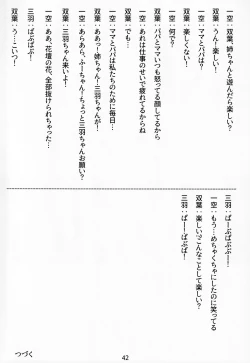 一空：双葉、姉ちゃんと遊んだら楽しい？
双葉：うん！楽しい！
一空：ママとパパは？
双葉：楽しくない！
一空：何で？
双葉：パパとママいつも怒ってる顔してるから
一空：あれは仕事のせいで疲れてるからね
双葉：でも…
一空：ママとパパは私たちのために毎日…
双葉：ああっ！姉ちゃん！
一空：あらあら、ふーちゃん！ちょっと三羽ちゃんお願い？
三羽ちゃん来いよー！
一空：ああ、花壇の花、全部抜けられちゃった
三羽：ばぶばぶ！
双葉：う…こいつー！
三羽：ばーばぶばぶー！
一空：もう…めちゃくちゃにしたのに笑ってる
双葉：楽しい？こんなことして楽しい？
三羽：ばー！ばぶー！
つづく
42